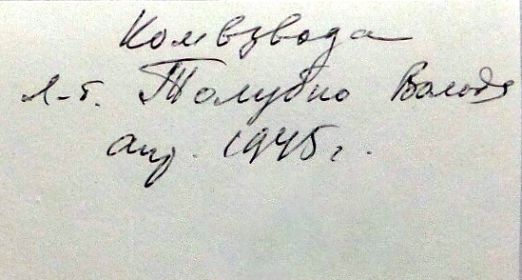 Комвзвода
л-т. Толубко Володя
апр. 1945 г.